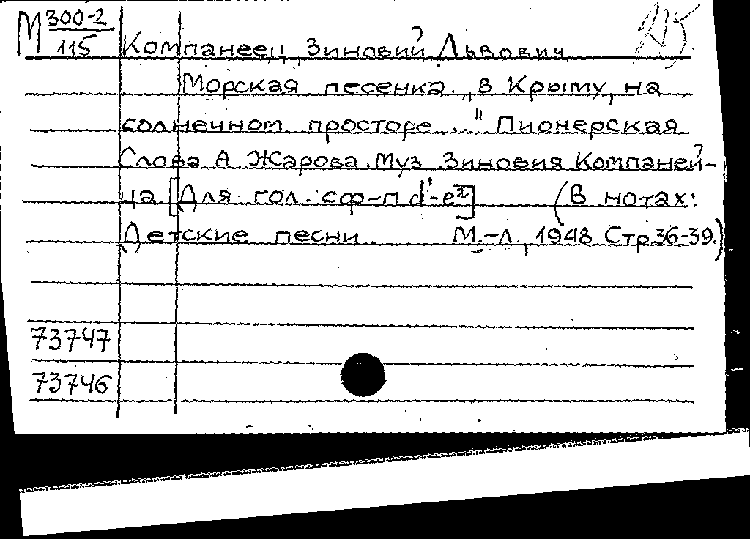 М 300-2
115 Компанеец, Зиновий Львович
Морская песенка „В Крыму, на
солнечном просторе..." Пионерская
Слова А Жарова Муз Зиновия Компаней-
ца [Для гол. с ф-п d¹-e²] (В нотах:
Детские песни М.-Л, 1948 Стр 36-39.)
73747
73746